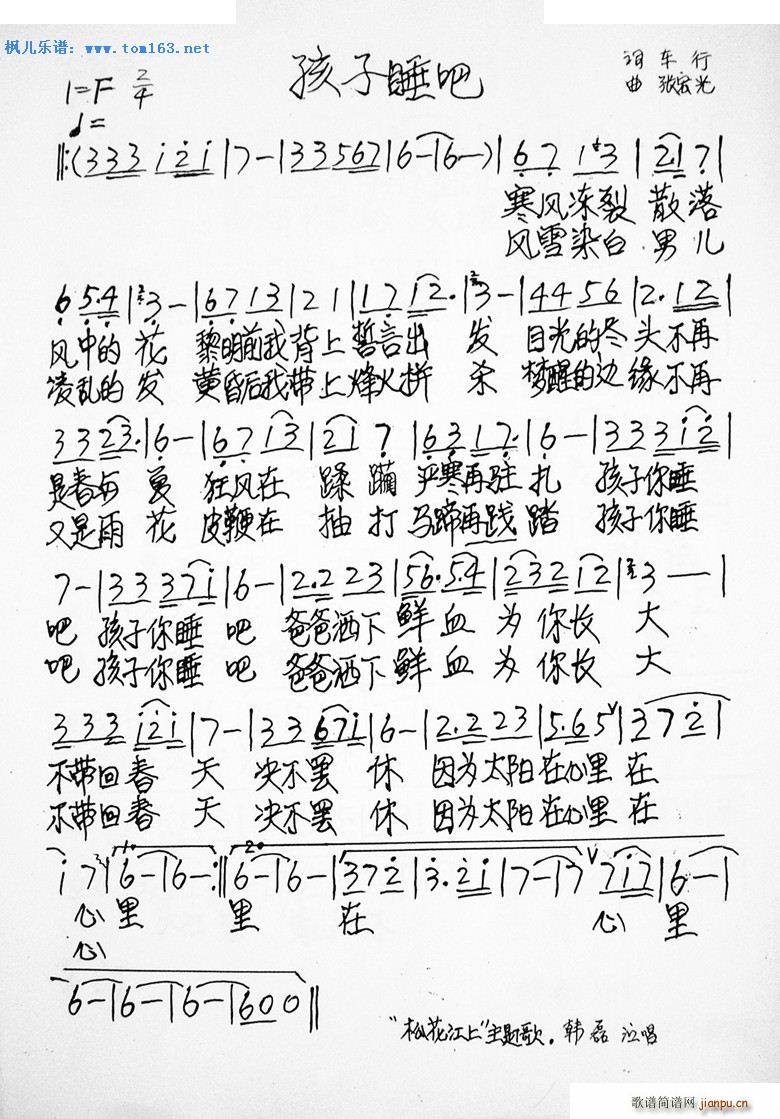 枫儿乐谱：www.tom163.net
孩子睡吧
词 车 行
曲 张宏光
1=F 2/4
♩=
‖:(333 i2i|7-|33567|6-|6-)|67 13|2·17|
寒风冻裂 散落
风雪染白 男儿
65·4|3-|67 13|2 1|17 12·|3-|44 56|2·12|
风中的 花 黎明前我 背上 誓言出 发 目光的尽 头不再
凌乱的 发 黄昏后我 带上 烽火拼 杀 梦醒的边 缘不再
33 23·|6-|67 i3|2i 7|63 17·|6-|333 i2|
是春与 夏 狂风在 蹂 躏 严寒再驻 扎 孩子你睡
又是雨 花 皮鞭在 抽 打 马蹄再践 踏 孩子你睡
7-|33 37i|6-|2·2 23|56·5·4|232 12|3--|
吧 孩子你睡 吧 爸爸洒下 鲜 血 为 你长 大
吧 孩子你睡 吧 爸爸洒下 鲜 血 为 你长 大
333 i2i|7-|33 67i|6-|2·2 23|5·65|372|
不带回春 天 决不罢 休 因为太阳在心里 在
不带回春 天 决不罢 休 因为太阳在心里 在
i7|6-|6-:‖6-|6-|372|3·2i|7-|7 7i7|6-|
心 里 里 在 心 里
心
6-|6-|6-|600‖
"松花江上"主题歌。韩磊 演唱
歌谱简谱网
jianpu.cn